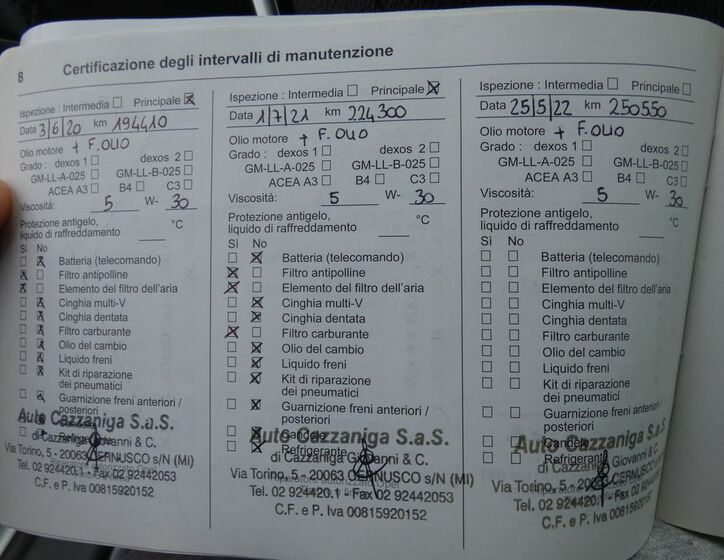 8 Certificazione degli intervalli di manutenzione
Ispezione : Intermedia Principale X
Data 3/6/20 km 194410
Olio motore + F. OLIO
Grado : dexos 1 dexos 2
GM-LL-A-025 GM-LL-B-025
ACEA A3 B4 C3
Viscosità: 5 W- 30
Protezione antigelo,
liquido di raffreddamento °C
Sì No
Batteria (telecomando)
Filtro antipolline
Elemento del filtro dell'aria
Cinghia multi-V
Cinghia dentata
Filtro carburante
Olio del cambio
Liquido freni
Kit di riparazione
dei pneumatici
Guarnizione freni anteriori /
posteriori
Refrigerante
Auto Cazzaniga S.a.S.
di Cazzaniga Giovanni & C.
Via Torino, 5 - 20063 CERNUSCO s/N (MI)
Tel. 02 924420.1 - Fax 02 92442053
C.F. e P. Iva 00815920152
Ispezione : Intermedia Principale X
Data 1/7/21 km 224300
Olio motore + F. OLIO
Grado : dexos 1 dexos 2
GM-LL-A-025 GM-LL-B-025
ACEA A3 B4 C3
Viscosità: 5 W- 30
Protezione antigelo,
liquido di raffreddamento °C
Sì No
Batteria (telecomando)
Filtro antipolline
Elemento del filtro dell'aria
Cinghia multi-V
Cinghia dentata
Filtro carburante
Olio del cambio
Liquido freni
Kit di riparazione
dei pneumatici
Guarnizione freni anteriori /
posteriori
Candele
Refrigerante
Auto Cazzaniga S.a.S.
di Cazzaniga Giovanni & C.
Via Torino, 5 - 20063 CERNUSCO s/N (MI)
Tel. 02 924420.1 - Fax 02 92442053
C.F. e P. Iva 00815920152
Ispezione : Intermedia Principale
Data 25/5/22 km 250550
Olio motore + F. OLIO
Grado : dexos 1 dexos 2
GM-LL-A-025 GM-LL-B-025
ACEA A3 B4 C3
Viscosità: 5 W- 30
Protezione antigelo,
liquido di raffreddamento °C
Sì No
Batteria (telecomando)
Filtro antipolline
Elemento del filtro dell'aria
Cinghia multi-V
Cinghia dentata
Filtro carburante
Olio del cambio
Liquido freni
Kit di riparazione
dei pneumatici
Guarnizione freni anteriori /
posteriori
Candele
Refrigerante
Auto Cazzaniga S.a.S.
di Cazzaniga Giovanni & C.
Via Torino, 5 - 20063 CERNUSCO s/N (MI)
Tel. 02 924420.1 - Fax 02 92442053
C.F. e P. Iva 00815920152